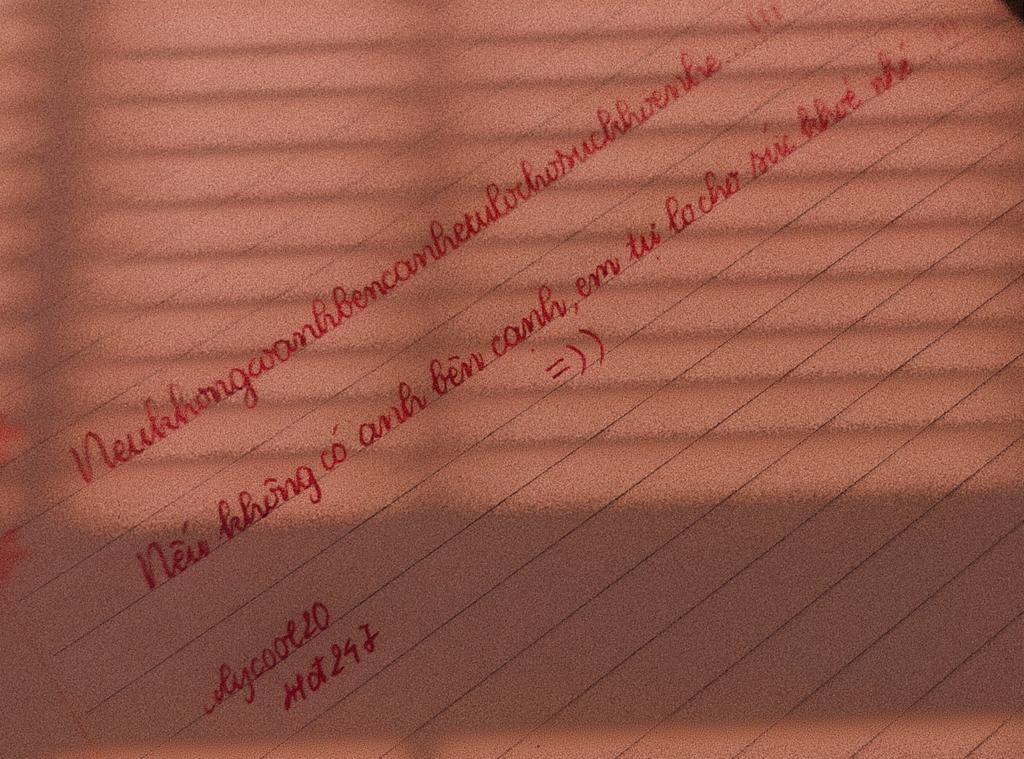 Neukhongcoanhbencanhetulochosuckhoenhe...!!!
Nếu không có anh bên cạnh, em tự lo cho sức khoẻ nhé !!!
=))
Hđ247